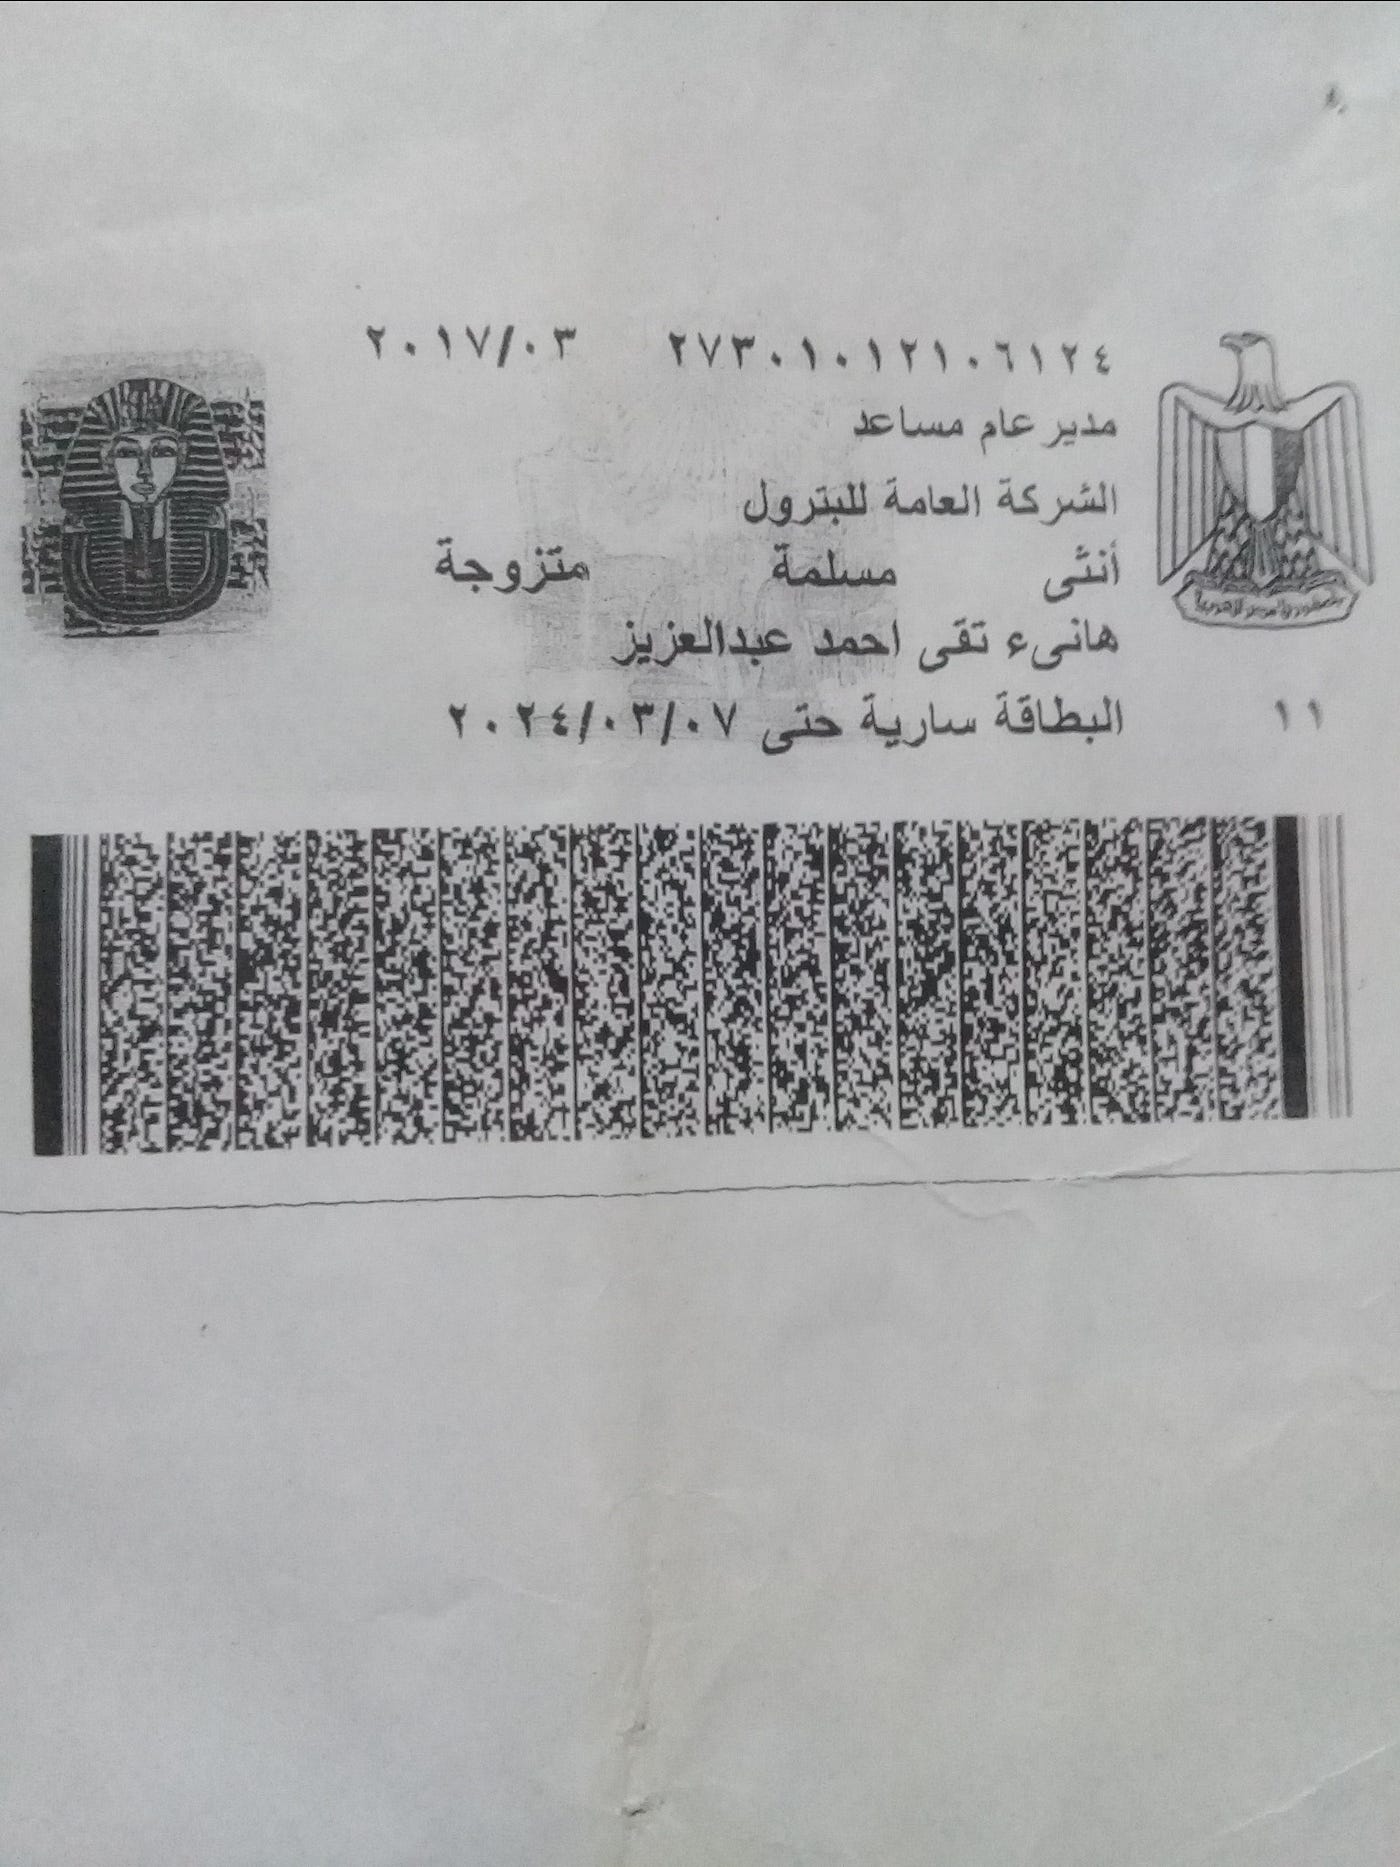 ٢٧٣٠١٠١٢١٠٦١٢٤ ٢٠١٧/٠٣
مدير عام مساعد
الشركة العامة للبترول
أنثى مسلمة متزوجة
هانىء تقى احمد عبدالعزيز
البطاقة سارية حتى ٢٠٢٤/٠٣/٠٧
١١